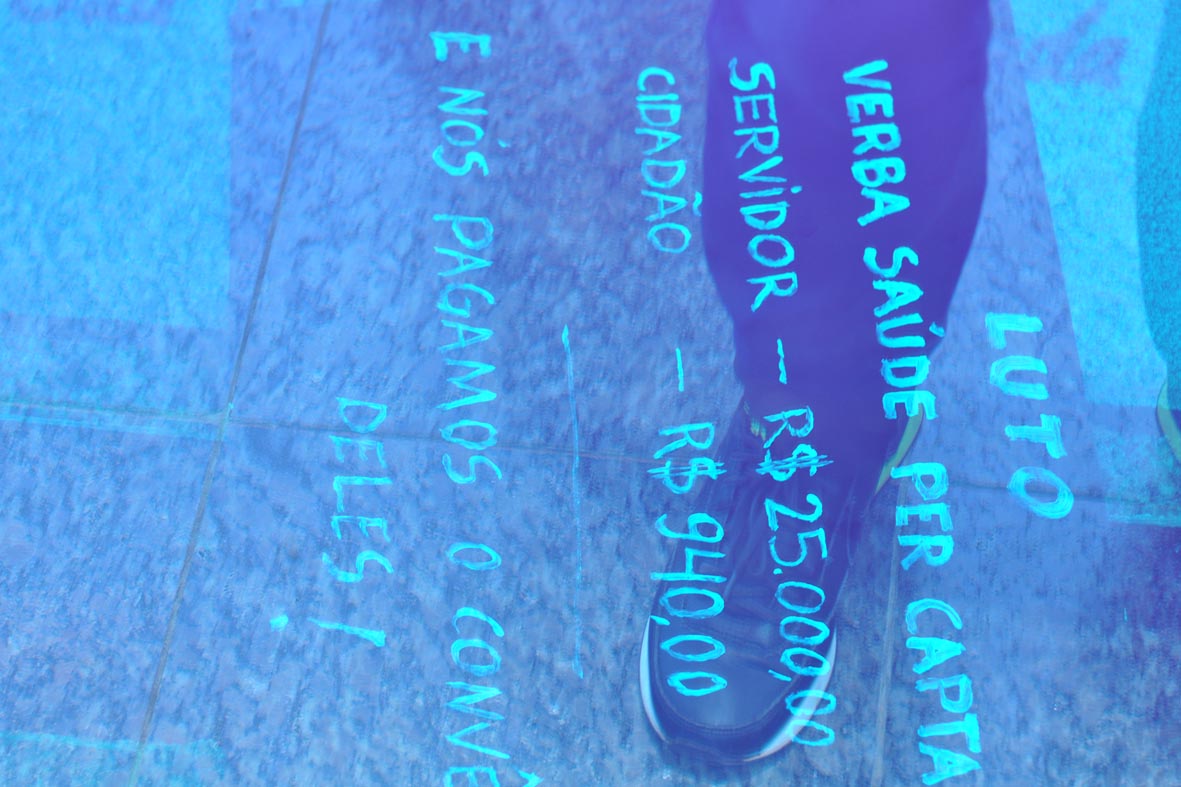 LUTO
VERBA SAÚDE PER CAPTA
SERVIDOR — R$ 25.000,00
CIDADÃO — R$ 940,00
E NÓS PAGAMOS O CONVÊ
DELES !